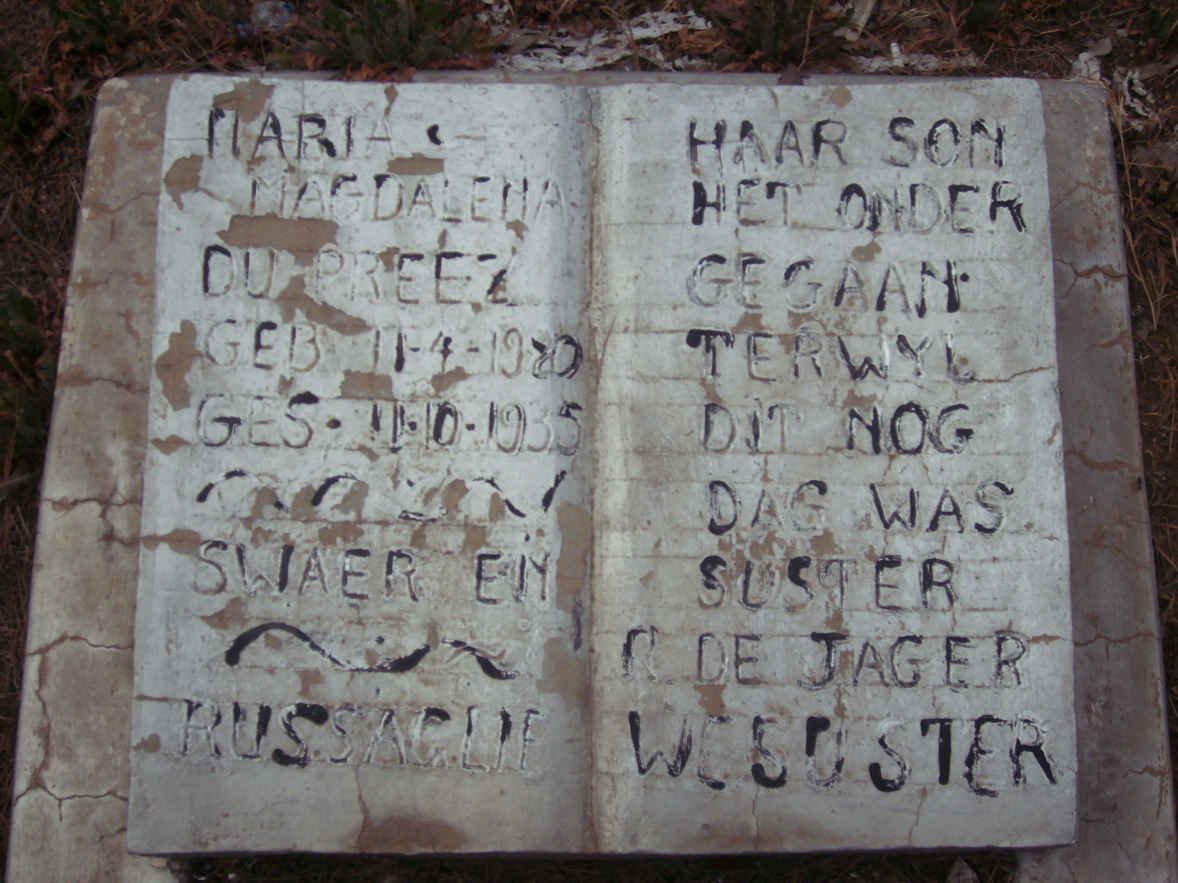 MARIA
MAGDALENA
DU PREEZ
GEB 11-4-1920
GES. 11.10.1935
SWAER EN
RUSSAGLIE
HAAR SON
HET ONDER
GEGAAN.
TERWYL
DIT NOG
DAG WAS
SUSTER
R. DE JAGER
WEBUSTER